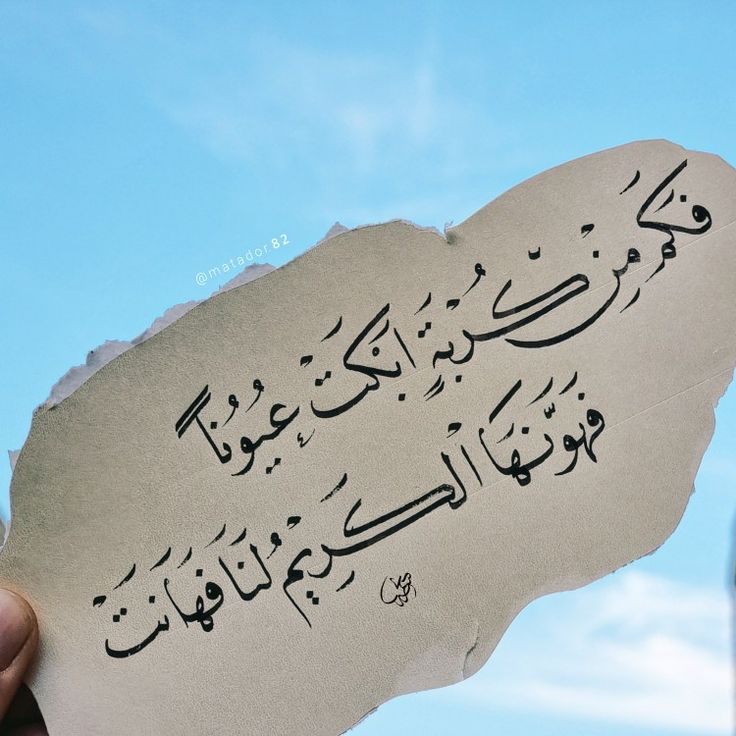 @matador.82
فَكَم مِنْ كُرْبَةٍ اَبْكَتْ عِيُوُنًا
فَهَوَّنَهَا الْكَرِيْمُ لَنَا فَهَانَتْ